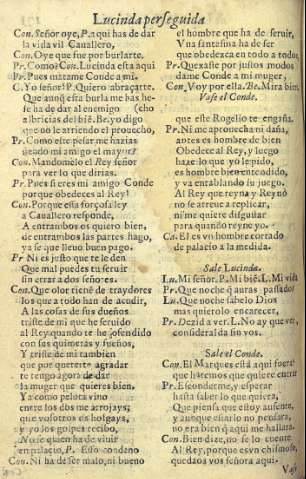 Lucinda perseguida
Con. Señor oye, P. aqui has de dar
la vida vil Cauallero,
Con. Oye que fue por burlarte.
Pr. Como? Con. Lucinda està aqui
Pr. Pues matame Conde a mi.
C. Yo señor? P. Quiero abraçarte.
Que aunq̃ esta burla me has he-
fe ha de dar al enemigo (cho
albricias del biẽ. Be. yo digo
que no le arriendo el prouecho,
Pr. Como este pesar me hazias
siendo mi amigo el mayor?
Con. Mandomelo el Rey señor
para ver lo que dirias.
Pr. Pues si eres mi amigo Conde
porque obedeces al Rey?
Con. Porque essa forçosa ley
a Cauallero responde,
A entrambos os quiero bien,
de entrambos las partes hago,
ya se que lleuo buen pago.
Pr Ni es justo que te le den
Que mal puedes tu seruir
sin errar a dos señores.
Con. Que olor tienẽ de traydores
los que a todo han de acudir,
A las cosas de sus dueños
triste de mi que he seruido
al Rey quando te he ofendido
con sus quimeras y sueños,
Y triste de mi tambien
que por quererte agradar
te tengo agora de dar
la muger que quieres bien.
Ya como pelota vino
entre los dos me arrojays;
que vosotros os holgays,
y yo los golpes recibo,
No se quien ha de viuir
en palacio, P. Esto condeno
Con. Ni ha de ser malo, ni bueno
el hombre que ha de seruir,
Vna fantasma ha de ser
que obedezca en todo a todos
Pr. Quexaste por justos modos
dame Conde a mi muger,
Con, Voy por ella. Be. Mira bien
Vase el Conde.
que este Rogelio te engaña.
Pr. Ni me aprouecha ni daña,
antes es hombre de bien
Obedece al Rey, y luego
haze lo que yo le pido,
es hombre bien entendido,
y va entablando su juego.
Al Rey que reyna y Reynò
no se atreue a replicar,
ni me quiere disgustar
para quando reyne yo.
Ca. El es vn hombre cortado
de palacio a la medida.
Sale Lucinda.
Lu. Mi señor. P. Mi biẽ. L. Mi vida
Pr. Que noche q̃ auras passado!
Lu. Que noche sabelo Dios
mas quierolo encarecer,
Pr. Dezid a ver. L. No ay que ver,
considerald a sin vos.
Sale el Conde.
Con. El Marques està aqui fuera
que haremos que quiere entrar
Pr. Esconderme, y esperar
hasta saber lo que quiera,
Que piensa que estoy ausente,
y aunque estarlo no pensàra,
no era bien q̃ aqui me hallara.
Con. Bien dize, no se lo cuente
Al Rey, porque es vn chismoso,
quedaos vos señora aqui.
Vase